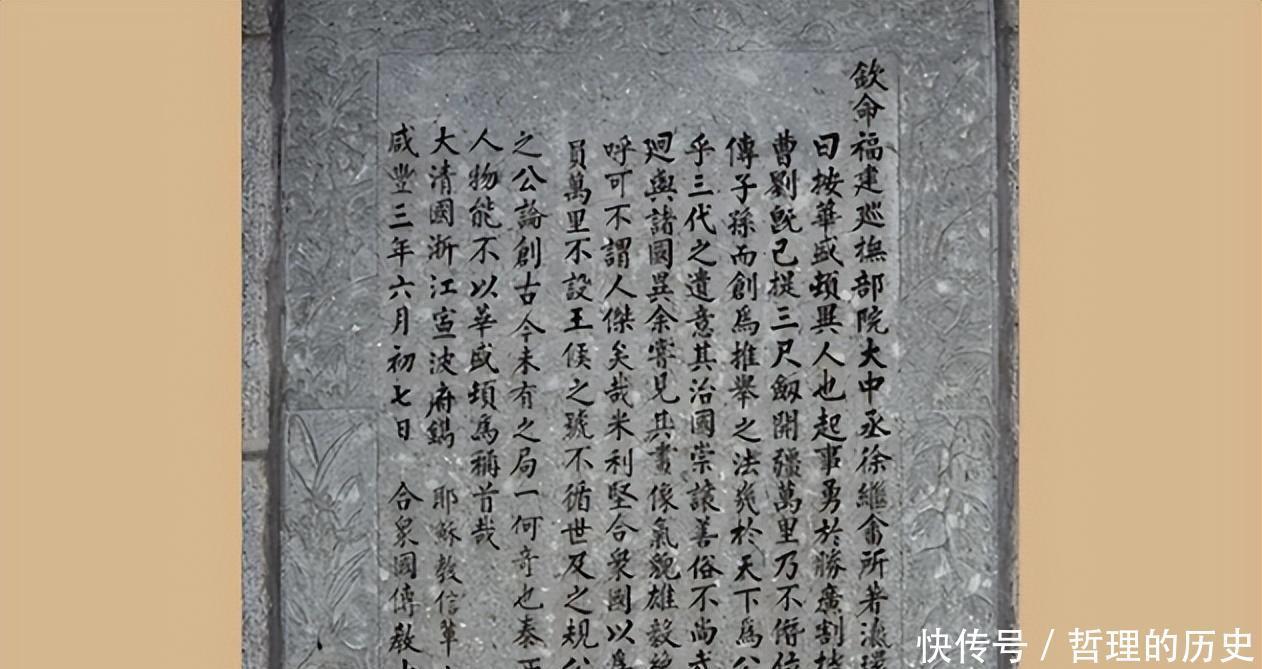 欽命福建巡撫部院大中丞徐繼畬所著瀛環
曰按華盛頓異人也起事勇於勝廣割據
曹劉既已提三尺劍開疆萬里乃不僭位
傳子孫而創為推舉之法幾於天下為公
乎三代之遺意其治國崇讓善俗不尚武
迥與諸國異余嘗見其畫像氣貌雄毅絕
呼可不謂人傑矣哉米利堅合衆國以為
員萬里不設王侯之號不循世及之規公
之公論創古今未有之局一何奇也泰西
人物能不以華盛頓為稱首哉
大清國浙江寧波府鐫 耶穌教信輩
咸豐三年六月初七日 合衆國傳教士
快传号 / 哲理的历史